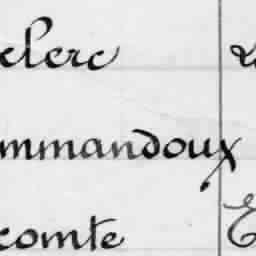 clerc
mmandoux
comte